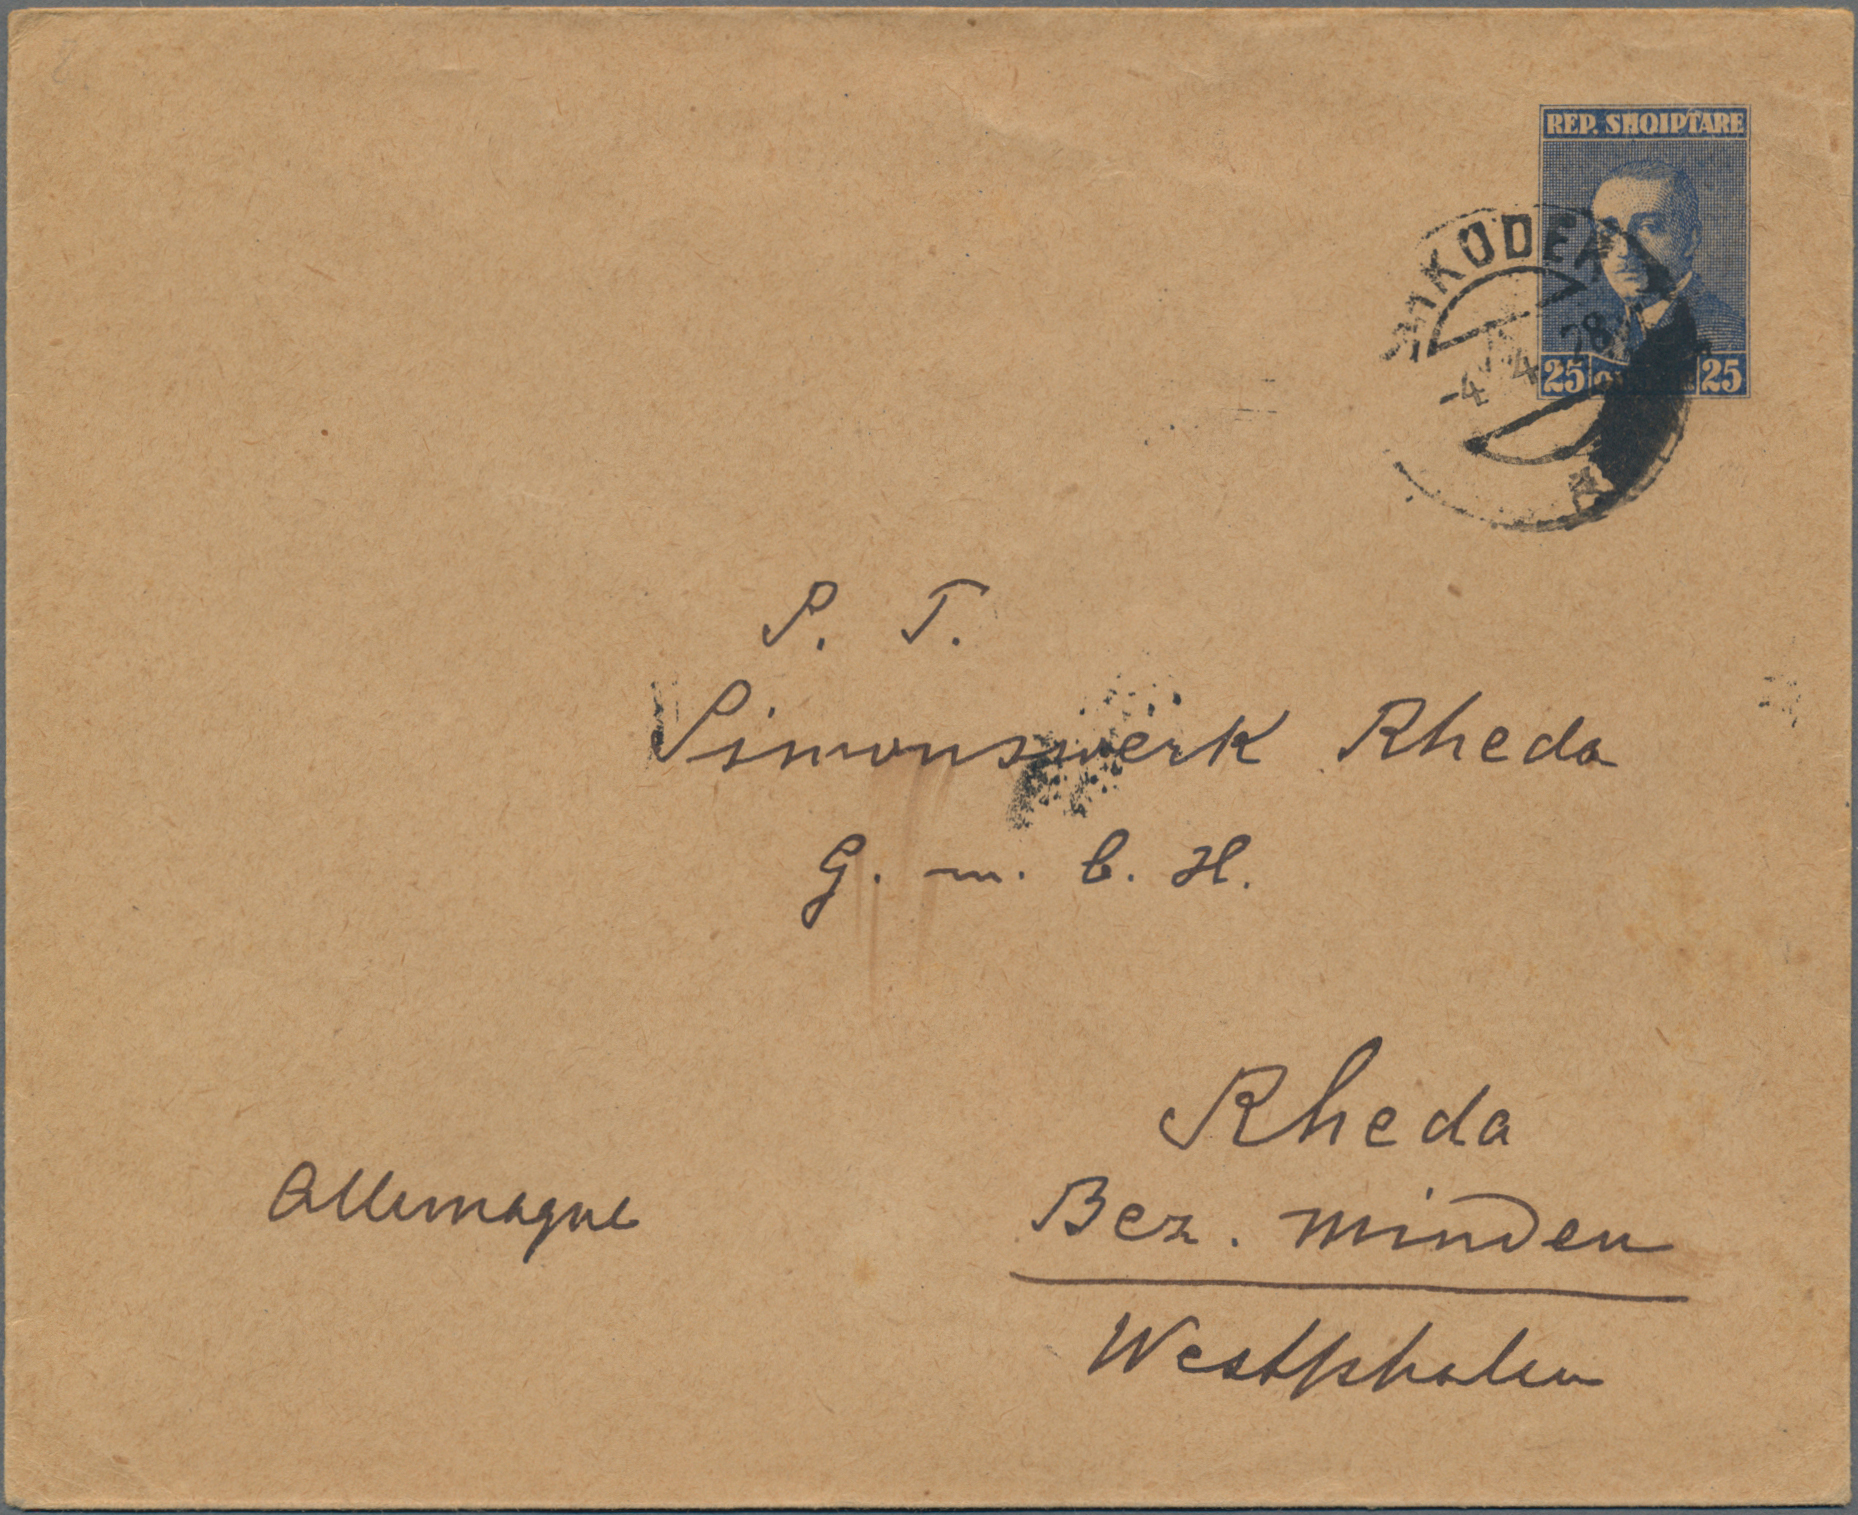 REP. SHQIPTARE
SHKODER
-4. 4. 28
25 25
P. T.
Simonswerk Rheda
G. m. b. H.
Rheda
Bez. Minden
Westphalen
Allemagne